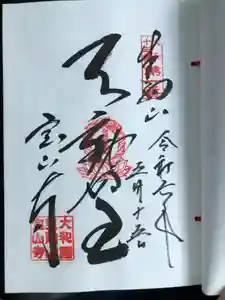 生駒山 令和六年
五月十五日
不動明王
宝山寺
大和國
生駒山
寳山寺